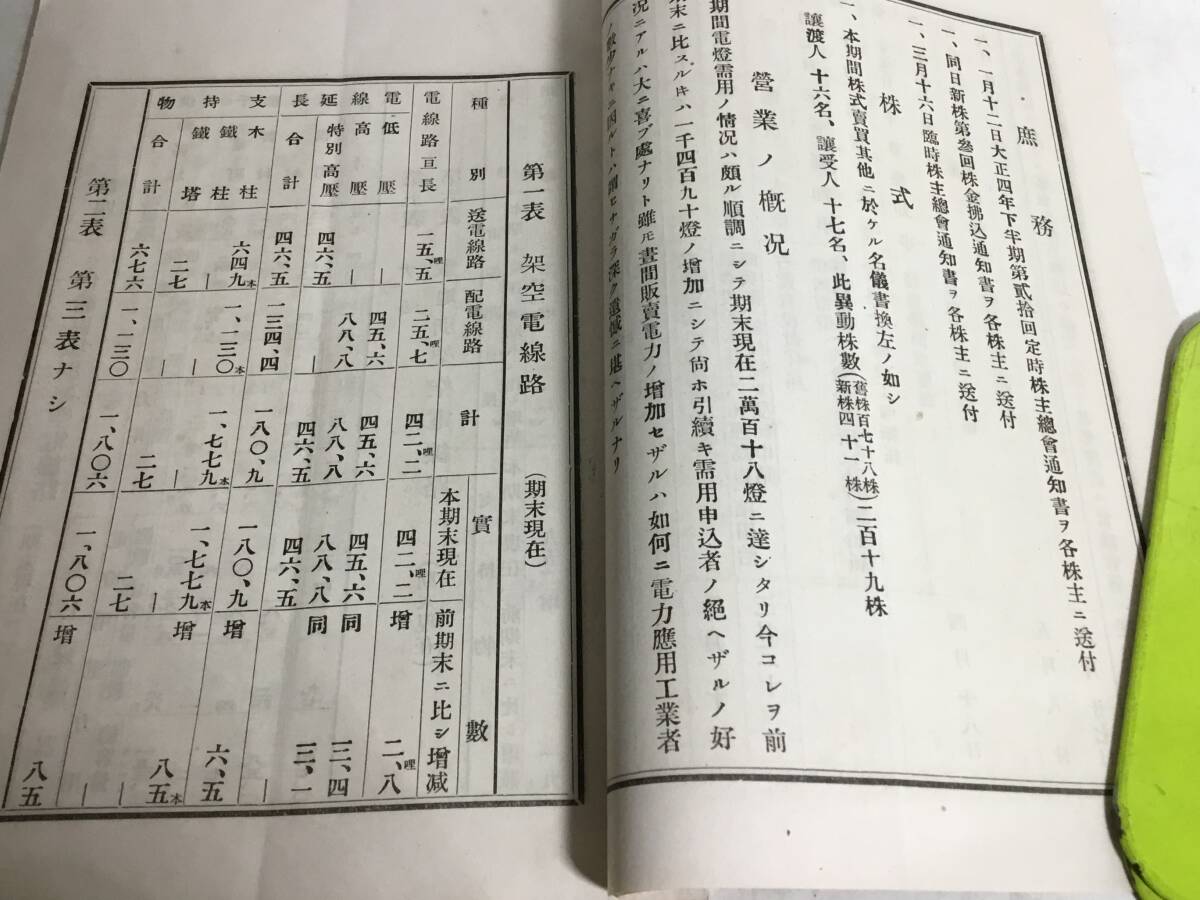 庶務
一、一月十二日大正四年下半期第貳拾回定時株主總會通知書ヲ各株主ニ送付
一、同日新株第參回株金拂込通知書ヲ各株主ニ送付
一、三月十六日臨時株主總會通知書ヲ各株主ニ送付
株式
一、本期間株式賣買其他ニ於ケル名儀書換左ノ如シ
讓渡人 十六名、讓受人 十七名、此異動株數(舊株百七十八株 新株四十一株)二百十九株
營業ノ概況
期間電燈需用ノ情況ハ頗ル順調ニシテ期末現在二萬百十八燈ニ達シタリ今コレヲ前
期末ニ比スルキハ一千四百九十燈ノ增加ニシテ尙ホ引續キ需用申込者ノ絕ヘザルノ好
況ニアルハ大ニ喜ブ處ナリト雖モ晝間販賣電力ノ增加セザルハ如何ニ電力應用工業者
ルトハ謂ヒナガラ深ク遺憾ニ堪ヘザルナリ
第一表 架空電線路 (期末現在)
種別 送電線路 配電線路 計 實數 本期末現在 前期末ニ比シ增减
電線路亘長 一五、五哩 二五、七哩 四二、二哩 四二、二哩 增 二、八哩
電線延長 低壓 | 四五、六 四五、六 四五、六 同 一三、四
高壓 | 八八、八 八八、八 八八、八 同 三、一
特別高壓 四六、五 | 四六、五 四六、五 |
合計 四六、五 一三四、四 一八〇、九 一八〇、九 增 一六、五
支持物 木柱 六四九本 一、一三〇本 一、七七九 一、七七九本 增 八五本
鐵柱 | | | | |
鐵塔 二七 | 二七 二七 |
合計 六七六 一、一三〇 一、八〇六 一、八〇六 增 八五
第二表 第三表ナシ